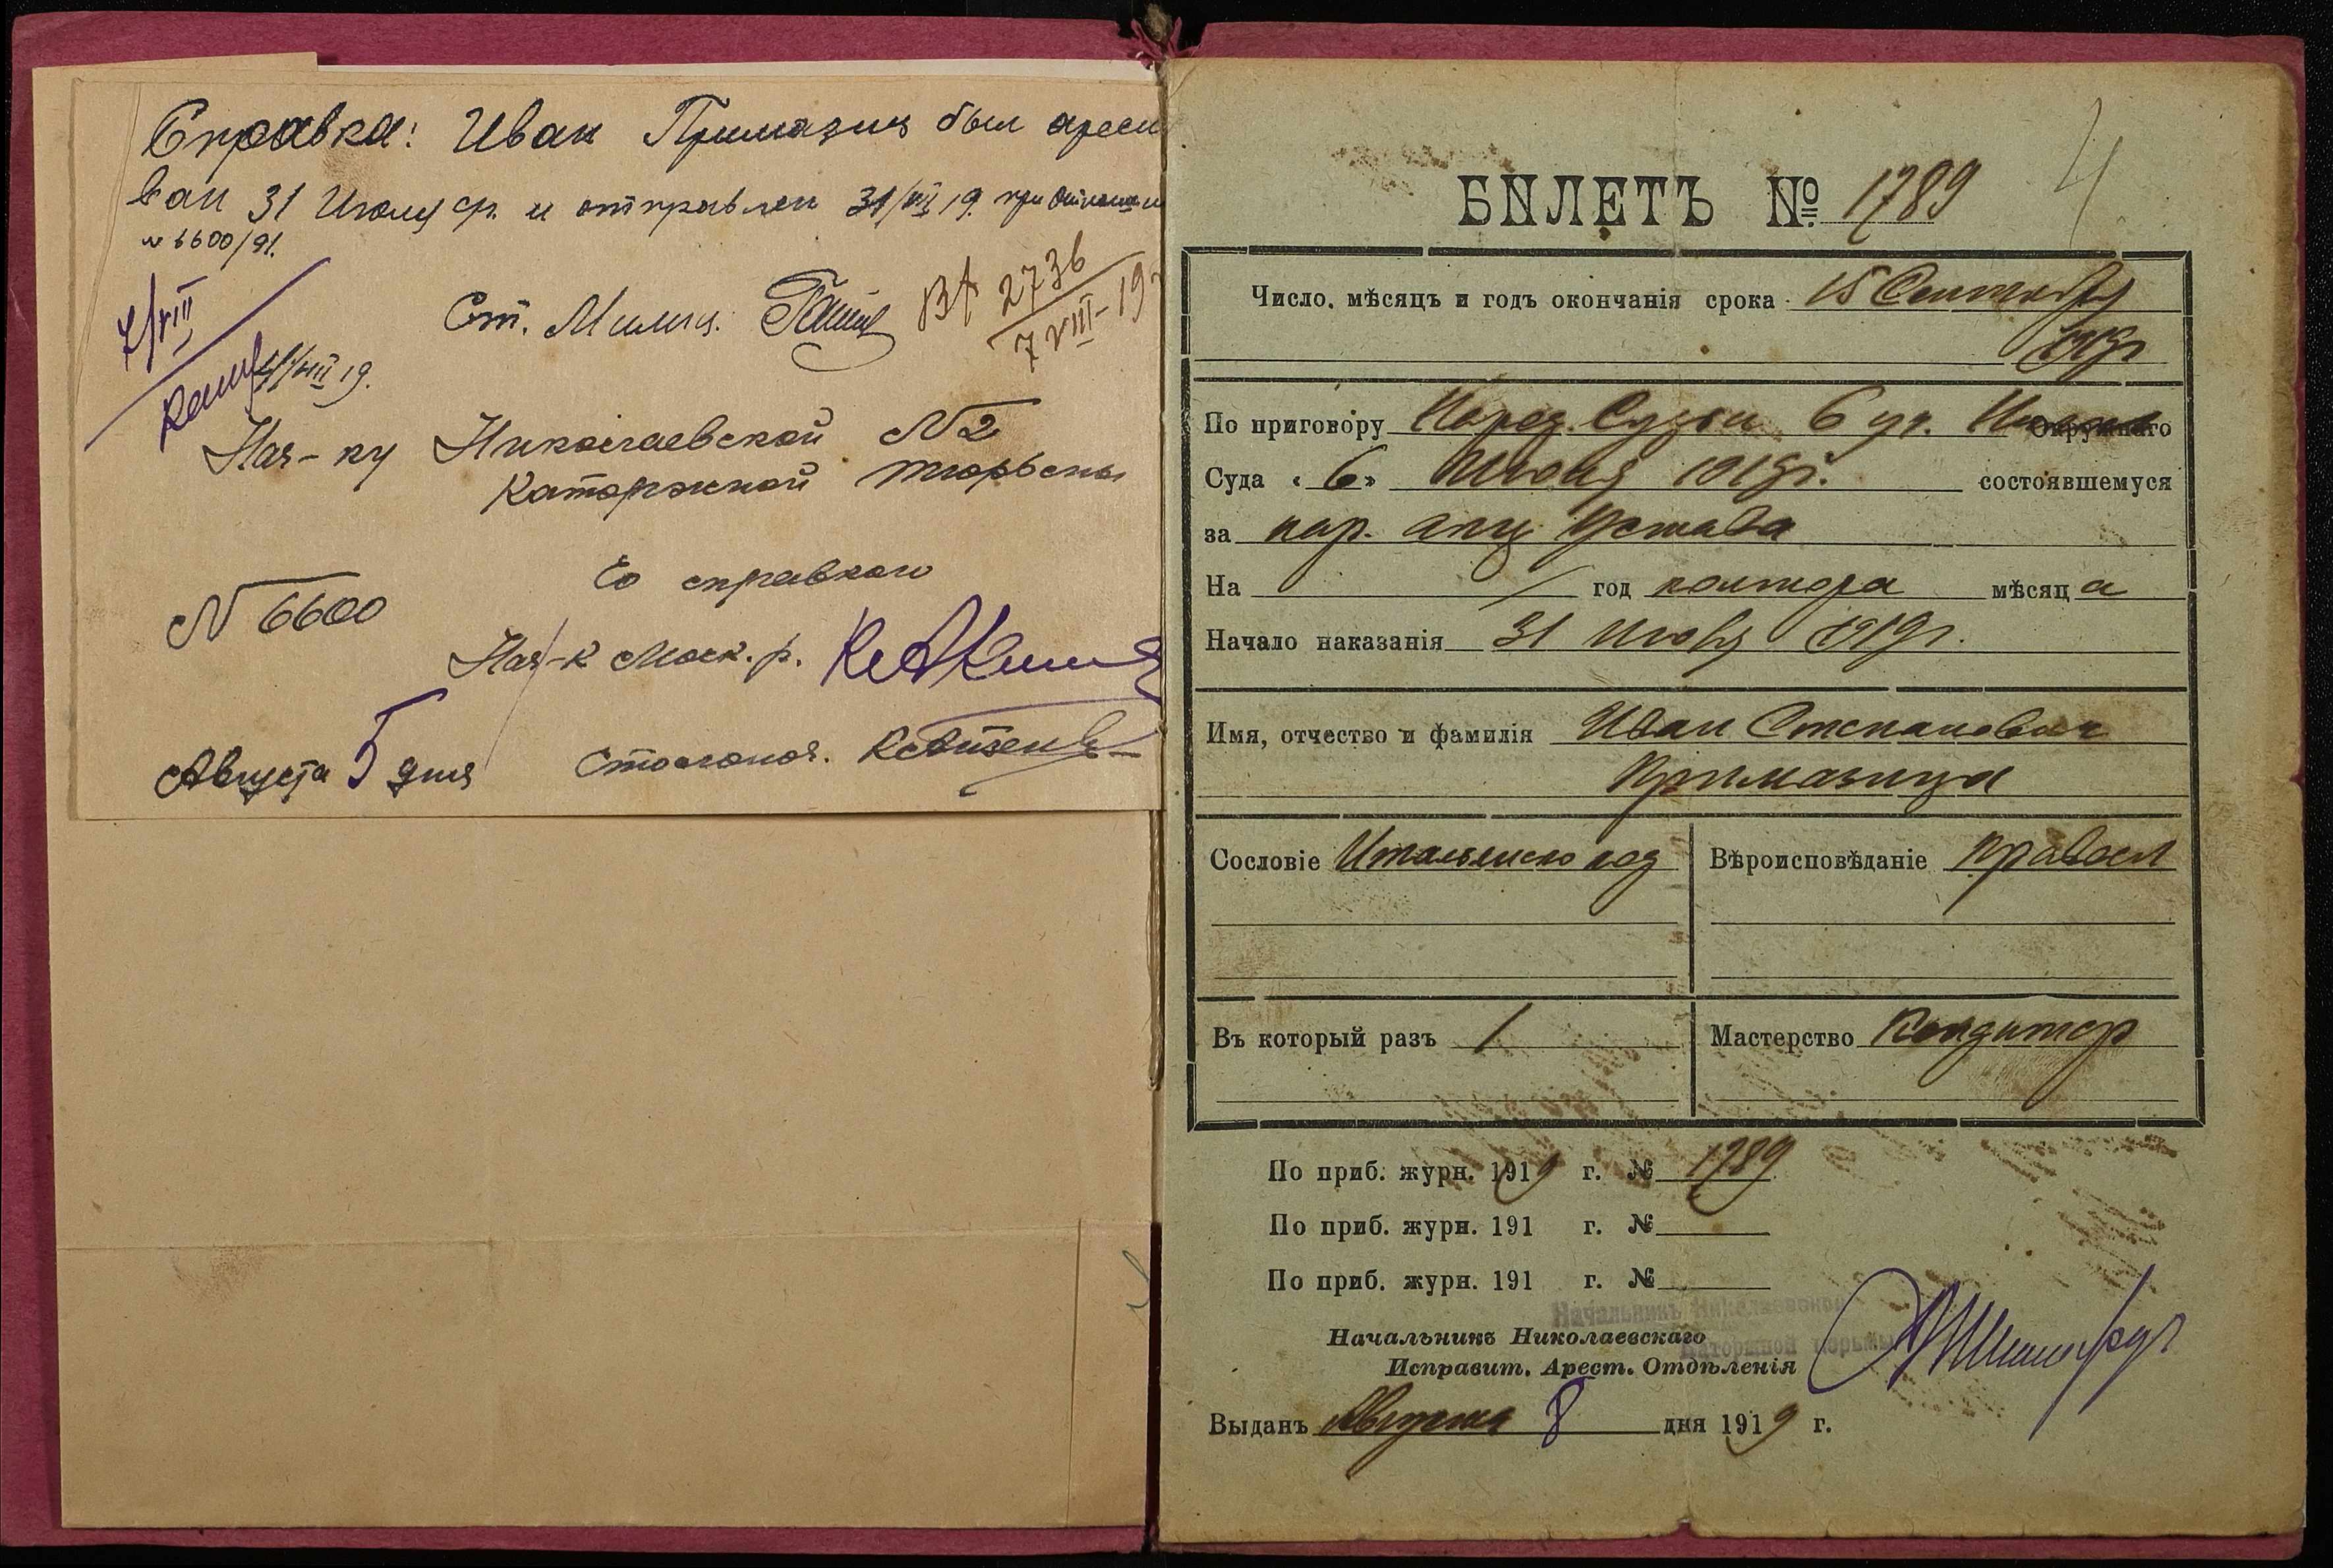 Справка: Иван Примазиц был арест
ван 31 Июля ср. и отправлен 31/VII 19. при отношении
№ 6600/91.
7/VIII
Ст. Милиц.
Вх 2736
7 VIII-19
31/VII 19.
Нач-ку Николаевской № 2
Каторжной тюрьмы
Со справкою
№ 6600
Нач-к Моск. р.
Августа 5 дня
Столонач.
4
БИЛЕТЪ № 1789
Число, мѣсяцъ и годъ окончанія срока 15 Сентября
1919г
По приговору Народ. Судьи 6 уч. Окружнаго
Суда «6» Июня 1919г. состоявшемуся
за нар. акц Устава
На / год полтора мѣсяц а
Начало наказанія 31 Июля 1919г.
Имя, отчество и фамилія Иван Степанович
Примазица
Сословіе Итальянско под
Вѣроисповѣданіе правосл
Въ который разъ 1
Мастерство Кондитер
По приб. журн. 1919 г. № 1789
По приб. журн. 191 г. №
По приб. журн. 191 г. №
Начальникъ Николаевской
Каторжной тюрьмы
Начальникъ Николаевскаго
Исправит. Арест. Отдѣленія
Выданъ Августа 8 дня 1919 г.